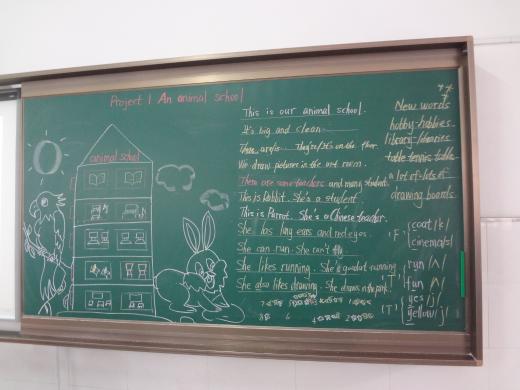 Project 1 An animal school
animal school
This is our animal school.
It's big and clean
There are/is They're/It's on the floor.
We draw pictures in the art room.
There are some teachers and many student
This is Rabbit. She's a student.
This is Parrot. She's a Chinese teacher.
She has long ears and red eyes.
She can run. She can't fly
She likes running. She is good at running
She also likes drawing. She draws in the park.
New words
hobby-hobbies
library-libraries
table tennis table
a lot of-lots of
drawing boards
"F" coat /k/
cinema /s/
"T" run /ʌ/
fun /ʌ/
"T" yes /j/
yellow /j/